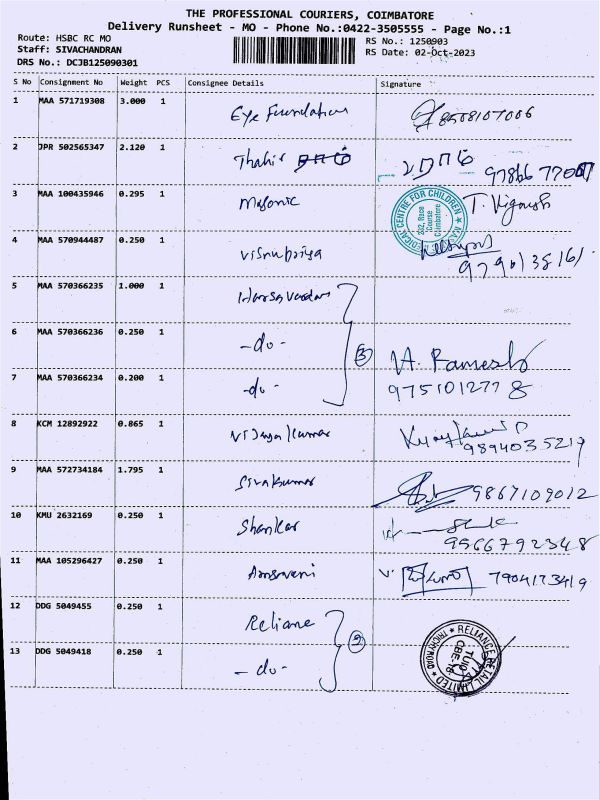 THE PROFESSIONAL COURIERS, COIMBATORE
Delivery Runsheet - MO - Phone No.:0422-3505555 - Page No.:1
Route: HSBC RC MO
RS No.: 1250903
Staff: SIVACHANDRAN
RS Date: 02-Oct-2023
DRS No.: DCJB125090301
S No Consignment No Weight PCS Consignee Details Signature
1 MAA 571719308 3.000 1 Eye Foundation 8508107006
2 JPR 502565347 2.120 1 Thahir
3 MAA 100435946 0.295 1 Masonic T. Vignesh
MEDICAL CENTRE FOR CHILDREN
232, Race
Course
Coimbatore
4 MAA 570944487 0.250 1 Visnupriya
5 MAA 570366235 1.000 1
6 MAA 570366236 0.250 1 -do-
3
7 MAA 570366234 0.200 1 -do- Ramesh
9751012778
8 KCM 12892922 0.865 1 Vijayakumar
9894035219
9 MAA 572734184 1.795 1 Sivakumar 9867109012
10 KMU 2632169 0.250 1 Shankar
9566792348
11 MAA 105296427 0.250 1 7904173419
12 DDG 5049455 0.250 1 Reliance
2
13 DDG 5049418 0.250 1 -do-
RELIANCE RETAIL LIMITED
TRICHY ROAD
CBE-18